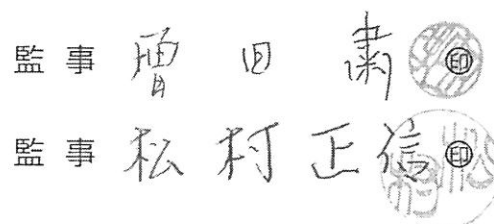 監事 曽田 粛 印
監事 松村正信 印